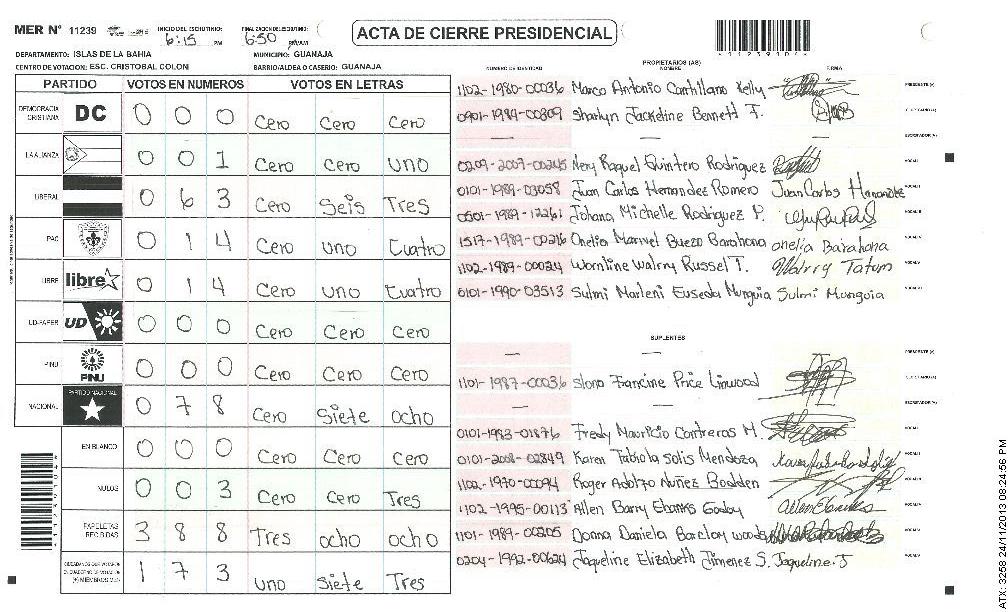 MER Nº 11239 INICIO DEL ESCRUTINIO: 6:15 PM FINALIZACION DEL ESCRUTINIO: 6:50 PM ACTA DE CIERRE PRESIDENCIAL
DEPARTAMENTO: ISLAS DE LA BAHIA MUNICIPIO: GUANAJA
CENTRO DE VOTACION: ESC. CRISTOBAL COLON BARRIO/ALDEA O CASERIO: GUANAJA
PARTIDO VOTOS EN NUMEROS VOTOS EN LETRAS
DEMOCRACIA CRISTIANA DC 0 0 0 Cero Cero Cero
LA ALIANZA 0 0 1 Cero Cero uno
LIBERAL 0 6 3 Cero Seis Tres
PAC 0 1 4 Cero uno Cuatro
LIBRE libre 0 1 4 Cero uno Cuatro
UD-FAPER UD 0 0 0 Cero Cero Cero
PINU PINU 0 0 0 Cero Cero Cero
NACIONAL PARTIDO NACIONAL 0 7 8 Cero Siete ocho
EN BLANCO 0 0 0 Cero Cero Cero
NULOS 0 0 3 Cero Cero Tres
PAPELETAS RECIBIDAS 3 8 8 Tres ocho ocho
CIUDADANOS QUE VOTARON 1 7 3 uno Siete Tres
PROPIETARIOS (AS)
NUMERO DE IDENTIDAD NOMBRE FIRMA
1102-1980-00036 Marco Antonio Carhllano Kelly PRESIDENTE (A)
0901-1984-00809 Sharlyn Jackeline Bennett F.
— — — ESCRUTADOR (A)
0209-2007-00245 Nery Raquel Quintero Rodriguez VOCAL I
0101-1989-03058 Juan Carlos Hernandez Romero Juan Carlos Hernandez
0501-1989-12261 Johana Michelle Rodriguez P.
1517-1989-00216 Onelia Marivel Buezo Barahona onelia Barahona
1102-1989-00024 Wornline Walrry Russel T. Walrry Tatum
0101-1990-03513 Sulmi Marleni Euseda Munguia Sulmi Munguia
SUPLENTES
— — PRESIDENTE (A)
1101-1987-00036 Slona Francine Price Linwood
— — ESCRUTADOR (A)
0101-1983-01876 Fredy Mauricio Contreras M.
0101-2008-02849 Karen Fabiola Solis Mendoza
1102-1970-00094 Roger Adolfo Nuñez Bodden
1102-1995-00113 Allen Barry Ebanks Goday Allen Ebanks
1101-1989-00205 Donna Daniela Barclay woods
0204-1992-00624 Jaqueline Elizabeth Jimenez S. Jaqueline.J
ATX: 3258 24/11/2013 08:24:56 PM